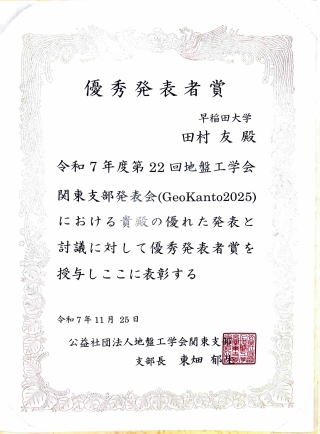 優秀発表者賞
早稲田大学
田村 友 殿
令和7年度第22回地盤工学会
関東支部発表会(GeoKanto2025)
における貴殿の優れた発表と
討議に対して優秀発表者賞を
授与しここに表彰する
令和7年11月 25日
公益社団法人地盤工学会関東支部
支部長 東畑 郁生